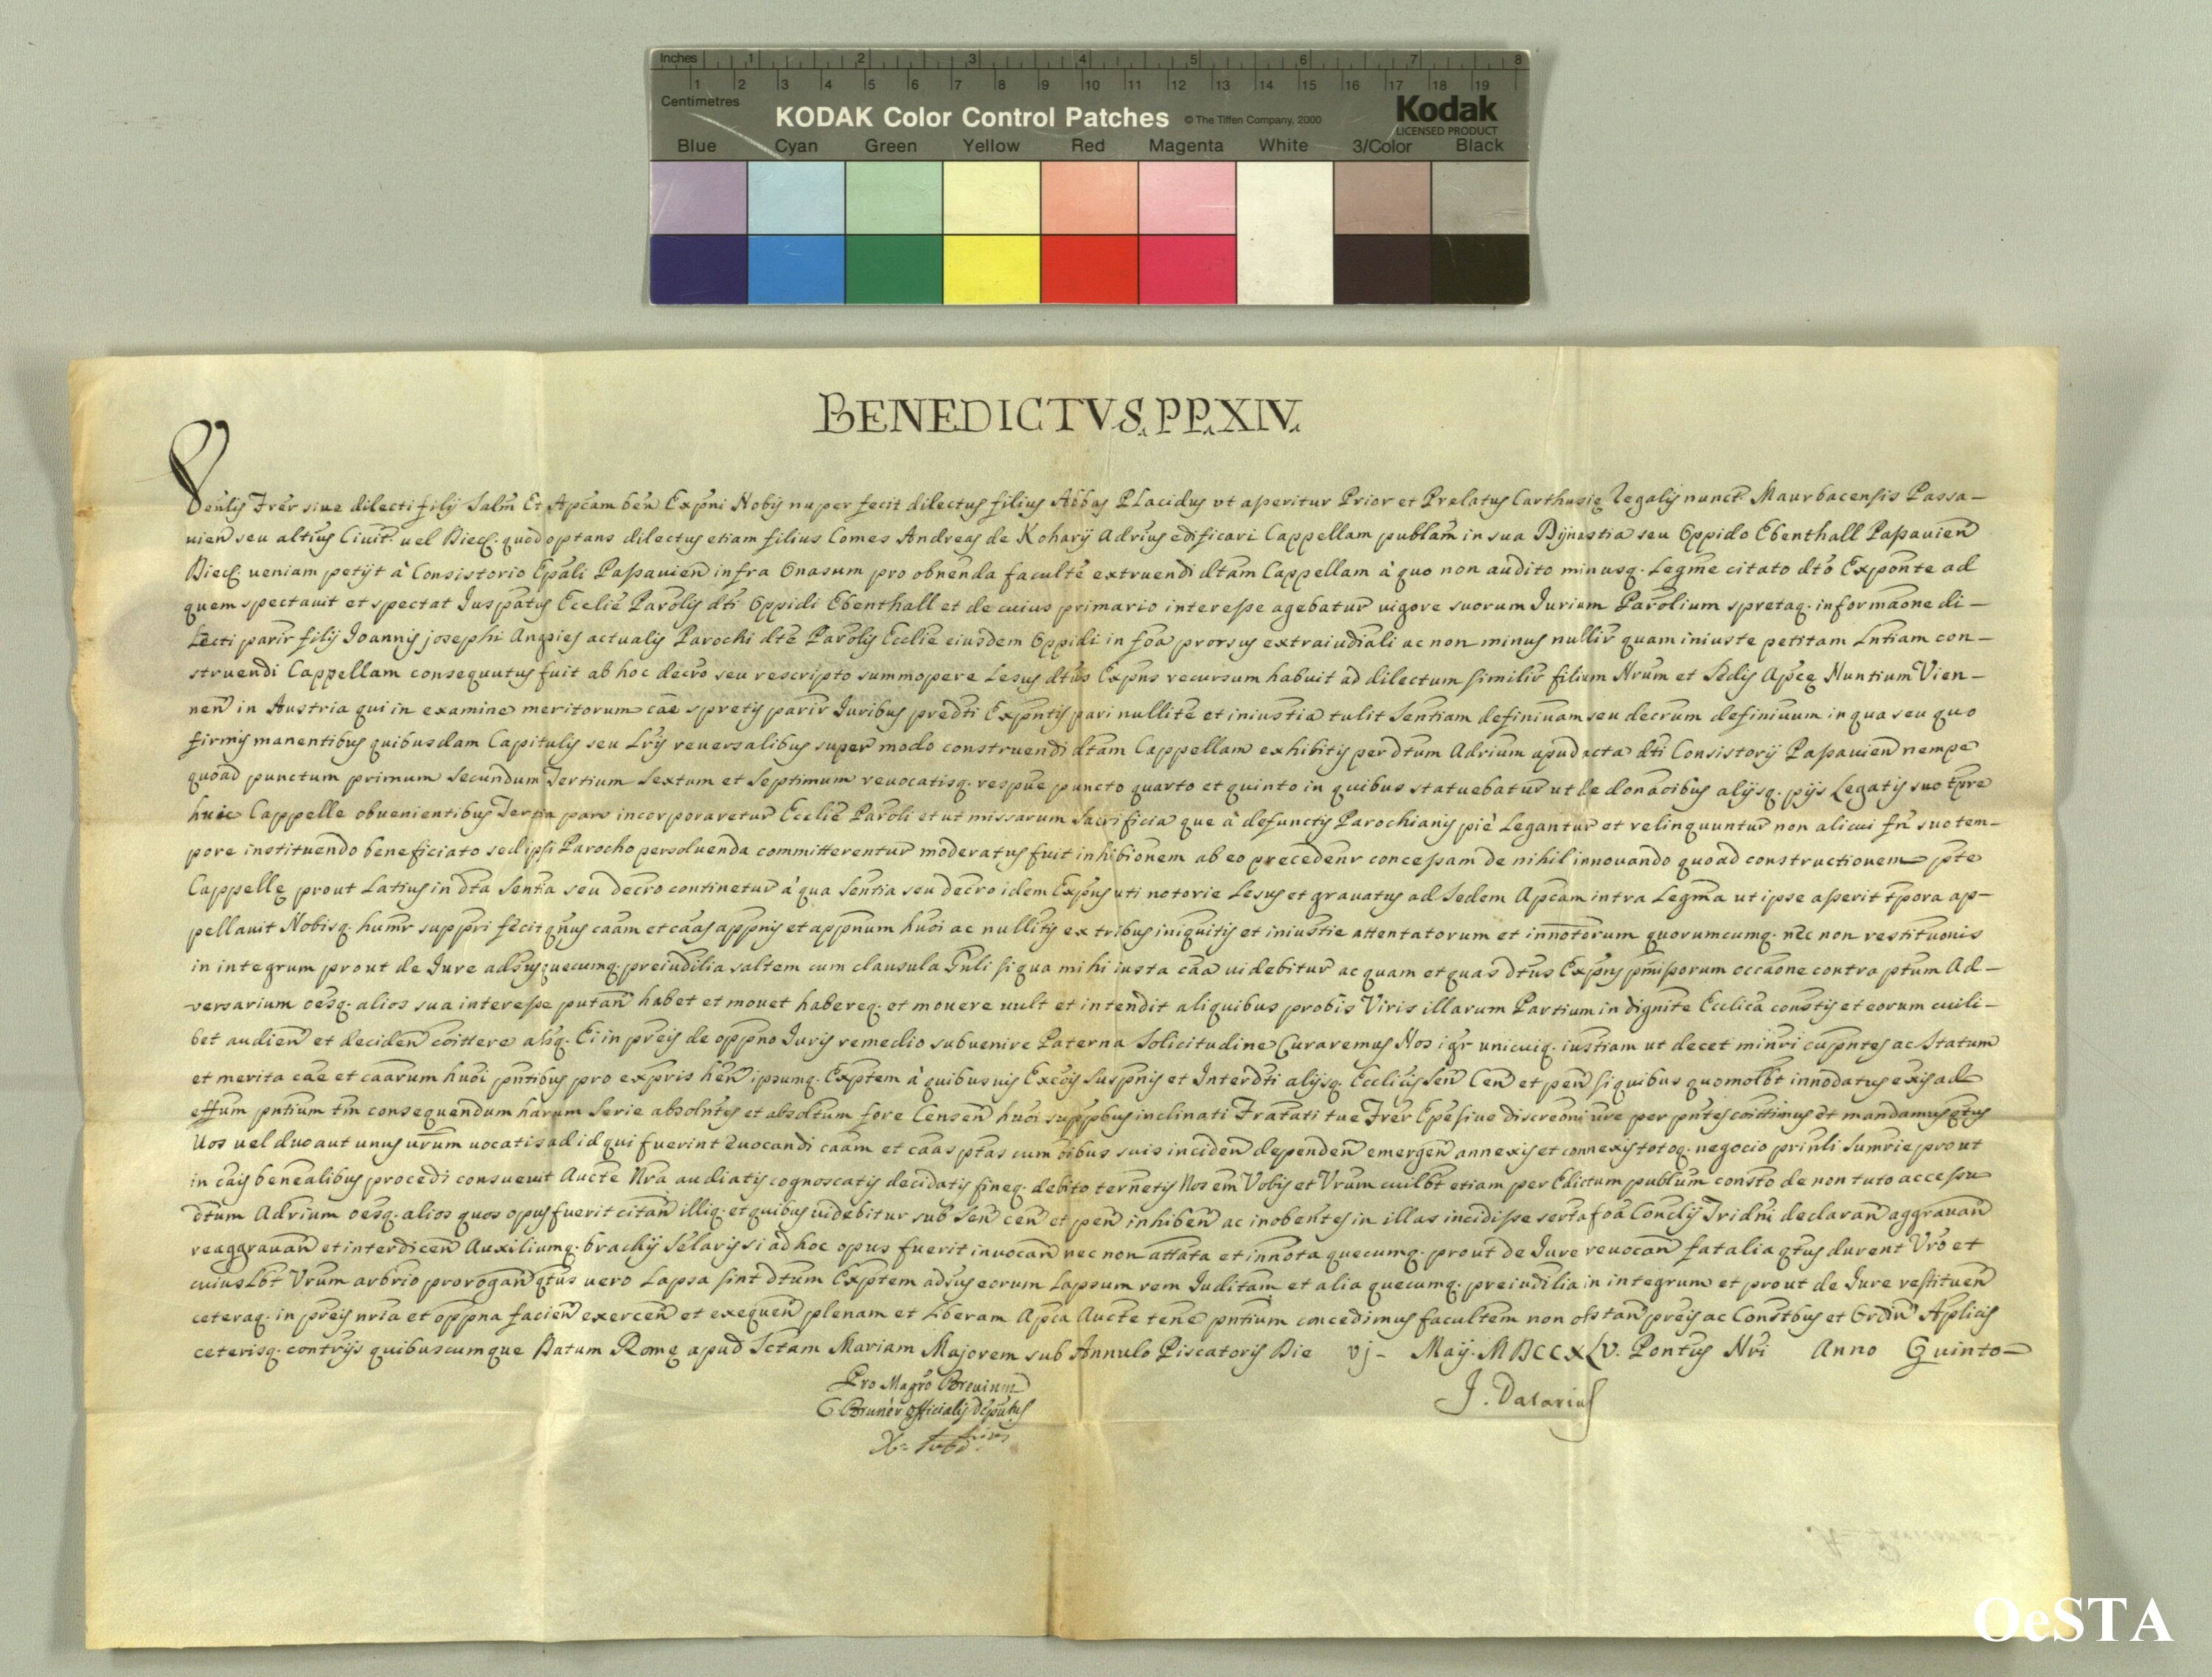 Inches 1 2 3 4 5 6 7 8
1 2 3 4 5 6 7 8 9 10 11 12 13 14 15 16 17 18 19
Centimetres
KODAK Color Control Patches © The Tiffen Company, 2000 Kodak
LICENSED PRODUCT
Blue Cyan Green Yellow Red Magenta White 3/Color Black
BENEDICTVS. PP. XIV.
Venlis Frer siue dilecti filij Salm Et Apcam ben Expni Nobis nuper fecit dilectus filius Abbas Placidus vt aperitur Prior et Prelatus Carthusię Regalis nunct Maurbacensis Passa-
uien seu altius Ciuit uel Diec. quod optans dilectus etiam filius Comes Andreas de Kohary Adrius edificari Cappellam publam in sua Dynastia seu Oppido Ebenthall Passauien
Diec ueniam petijt à Consistorio Epali Passauien infra Onasum pro obnenda faculte extruendi dtam Cappellam à quo non audito minusq. Legme citato dto Exponte ad
quem spectauit et spectat Iuspatus Ecclie Parolis dti Oppidi Ebenthall et de cuius primario interesse agebatur uigore suorum Iurium Parolium spretaq. informaone di-
lecti parir filij Joannis josephi actualis Parochi dte Parolis Ecclie eiusdem Oppidi in foa prorsus extraiudiali ac non minus nullir quam iniuste petitam Lntiam con-
struendi Cappellam consequutus fuit ab hoc decro seu rescripto summopere Lesus dtus Expns recursum habuit ad dilectum similir filium Nrum et Sedis Apcę Nuntium Vien-
nen in Austria qui in examine meritorum cae spretis parir Iuribus predti Expntis pari nullite et iniustia tulit Sentiam definiuam seu decrum definiuum in qua seu quo
firmis manentibus quibusdam Capitulis seu Lris reuersalibus super modo construendi dtam Cappellam exhibitis per dtum Adrium apud acta dti Consistorij Passauien nempe
quoad punctum primum Secundum Tertium Sextum et Septimum reuocatisq. respue puncto quarto et quinto in quibus statuebatur ut de donaoibus alijsq. pijs Legatis suo tpre
huic Cappelle obuenientibus Tertia pars incorporaretur Ecclie Paroli et ut missarum Sacrificia que à defunctis Parochianis piè Legantur et relinquuntur non alicui fr suo tem-
pore instituendo beneficiato sed ipsi Parocho persoluenda committerentur moderatus fuit inhibionem ab eo precedenr concessam de nihil innouando quoad constructionem pte
Cappellę prout Latius in dta Senta seu decro continetur à qua Sentia seu decro idem Expns uti notorie Lesus et grauatus ad Sedem Apcam intra Legma ut ipse asserit tpora ap-
pellauit Nobisq. humr suppri fecit qnus caam et caas appnis et appnum huoi ac nullitis ex tribus iniquitis et iniustie attentatorum et innotorum quorumcumq. nec non restituonis
in integrum prout de Iure adsus quecumq. preiudilia saltem cum clausula Gnli si qua mihi iusta caa uidebitur ac quam et quas dtus Expns pmissorum occaone contra ptum Ad-
versarium oesq. alios sua interesse putan habet et mouet habereq. et mouere uult et intendit aliquibus probis Viris illarum Partium in dignite Ecclica constis et eorum cuili-
bet audien et deciden coittere alsq. Ei in preis de oppno Iuris remedio subuenire Paterna Solicitudine Curaremus Nos igr unicuiq. iustiam ut decet minri cupntes ac Statum
et merita cae et caarum huoi pntibus pro expris hen ipsumq. Exptem à quibusuis Excois Suspnis et Interdti alijsq. Ecclicis Sen Cen et pen si quibus quomolbt innodatus exis ad
effum pntium tm consequendum harum Serie absolntes et absoltum fore Censen huoi suppbus inclinati Fratati tue Frer Epe siue discreoni ure per pntes coittimus et mandamus qtus
Uos uel duo aut unus urum uocatis ad id qui fuerint euocandi caam et caas ptas cum oibus suis inciden dependen emergen annexis et connexis totoq. negocio prinli Sumrie prout
in cais benealibus procedi consueuit Aucte Nra audiatis cognoscatis decidatis fineq. debito ternetis Nos em Vobis et Vrum cuilbt etiam per Edictum publum consto de non tuto accessu
dtum Adrium oesq. alios quos opus fuerit citan illiq. et quibus uidebitur sub Sen cen et pen inhiben ac inobentes in illas incidisse serta foa Conclij Tridni declaran aggrauan
reaggrauan et interdicen Auxiliumq. brachij Selaris si ad hoc opus fuerit inuocan nec non attata et innota quecumq. prout de Iure reuocan fatalia qtus durent Vro et
cuiuslbt Vrum arbrio prorogan qtus uero Lapsa sint dtum Exptem adsus eorum Lapsum rem Iuditam et alia quecumq. preiudilia in integrum et prout de Iure restituen
ceteraq. in preis nria et oppna facien exercen et exequen plenam et Liberam Apca Aucte tene pntium concedimus facultem non obstan preis ac Constbus et Ordin Aplicis
ceterisq. contrijs quibuscumque Datum Romę apud Sctam Mariam Majorem sub Annulo Piscatoris Die vj- Maij. MDCCXLV. Pontus Nri Anno Quinto-
Pro Magro Breuium J. Datarius
C. Bruner Officialis Deputus
OeSTA